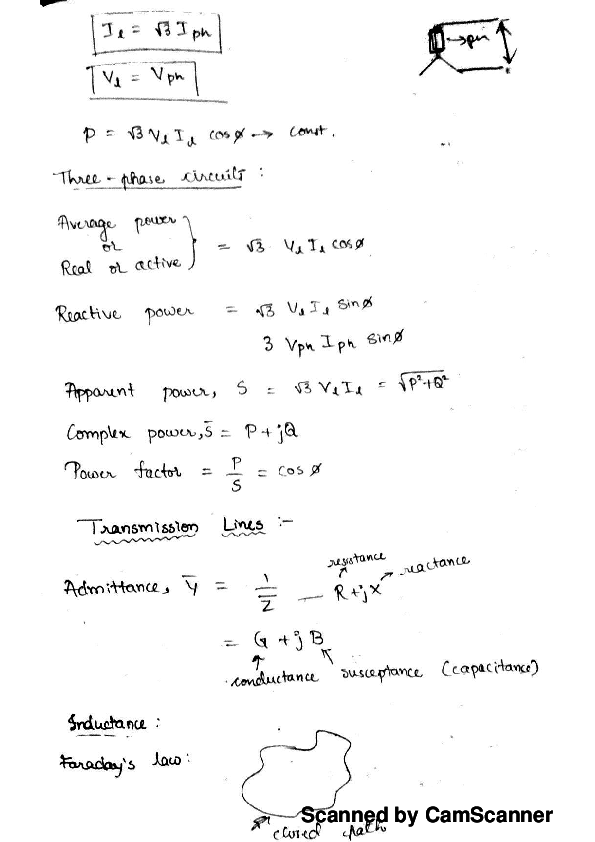 I_l = √3 I_ph
V_l = V_ph
→ pin
P = √3 V_l I_l cos ø → const.
Three-phase circuits :
Average power
or
Real or active } = √3 V_l I_l cos ø
Reactive power = √3 V_l I_l sin ø
3 V_ph I_ph sin ø
Apparent power, S = √3 V_l I_l = √P²+Q²
Complex power, S̄ = P + jQ
Power factor = P/S = cos ø
Transmission Lines :-
resistance reactance
Admittance, Ȳ = 1/Z̄ — R + jX
= G + jB
conductance susceptance (capacitance)
Inductance :
Faraday's law :
closed path
Scanned by CamScanner